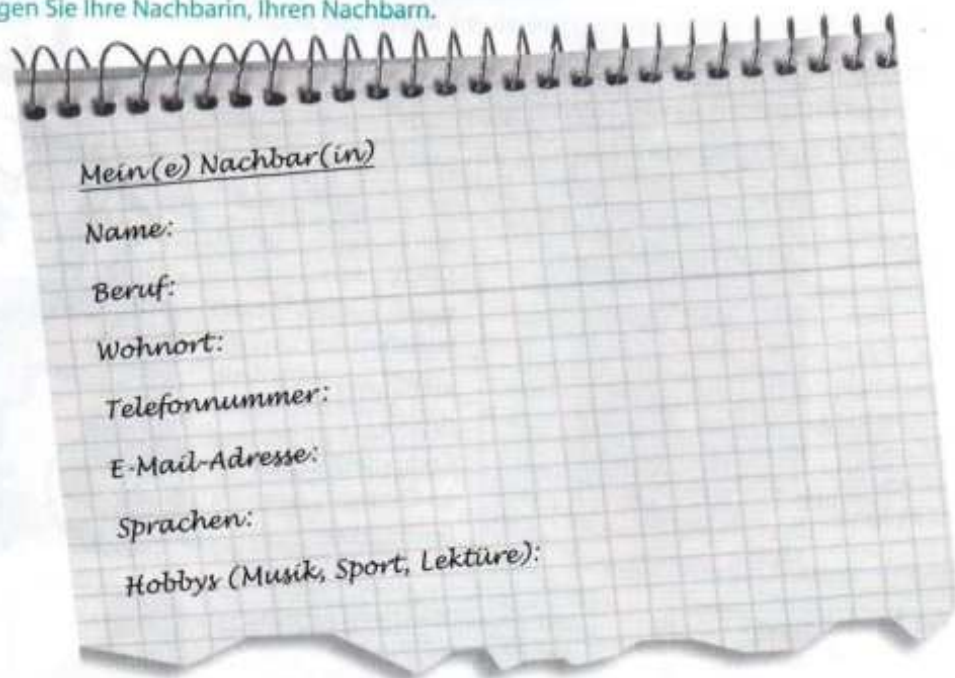 gen Sie Ihre Nachbarin, Ihren Nachbarn.
Mein(e) Nachbar(in)
Name:
Beruf:
Wohnort:
Telefonnummer:
E-Mail-Adresse:
Sprachen:
Hobbys (Musik, Sport, Lektüre):